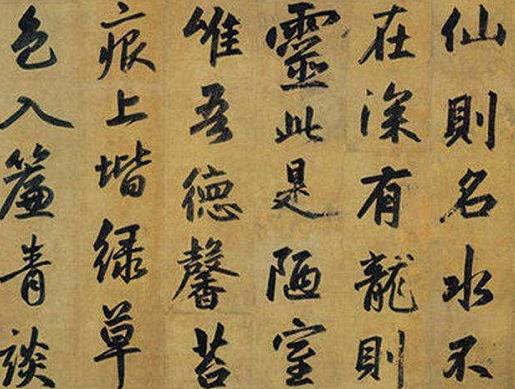 仙則名水不
在深有龍則
靈此是陋室
惟吾德馨苔
痕上堦綠草
色入簾青談